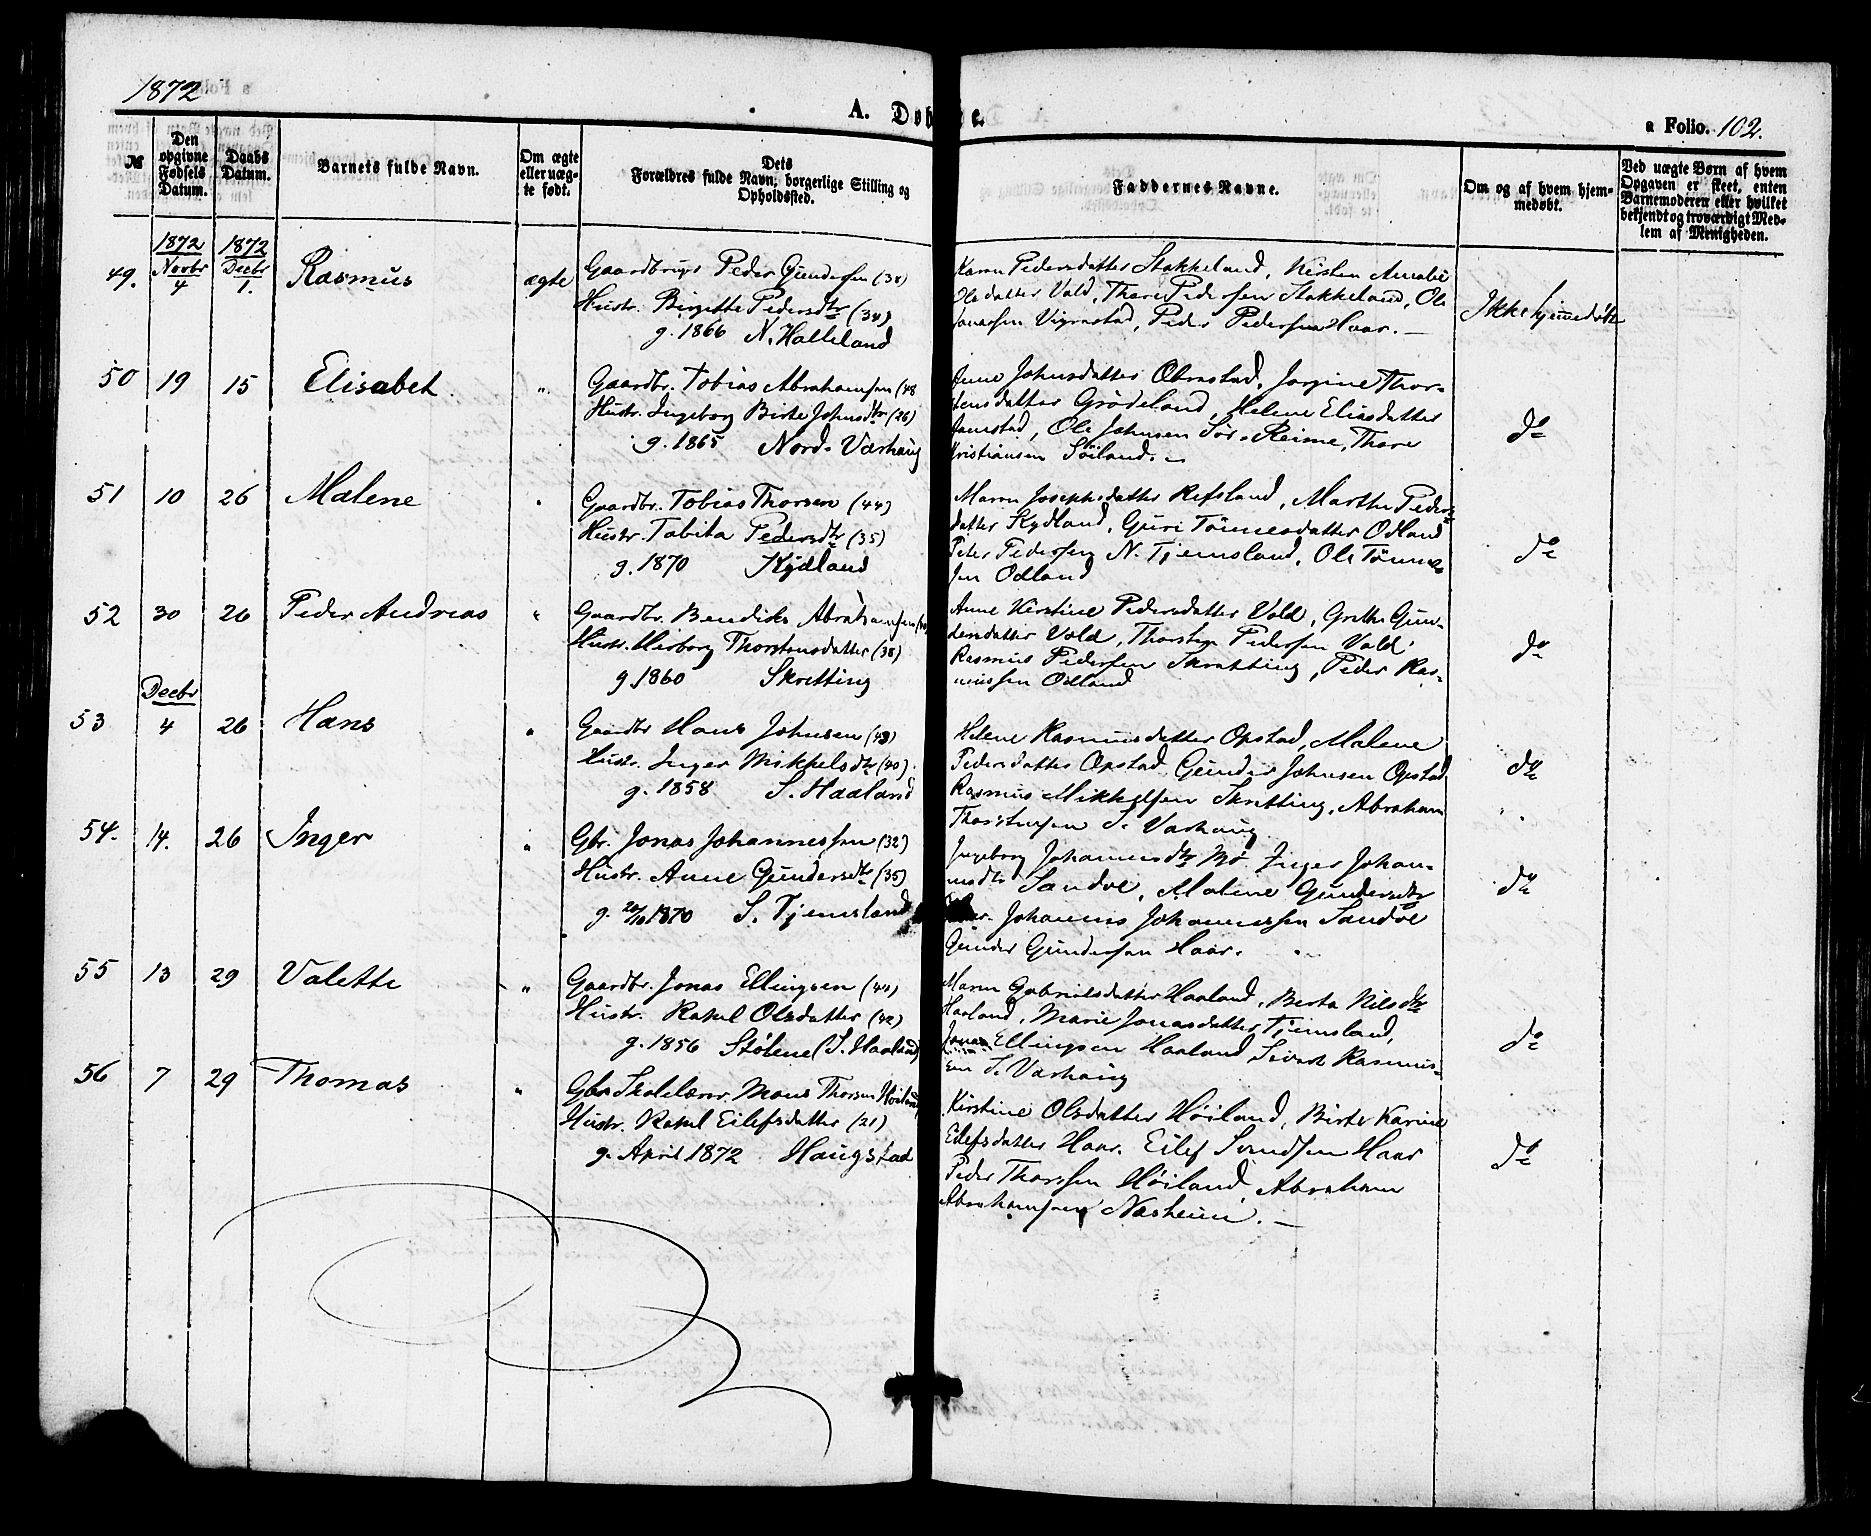 1872
A. Døbte.
a Folio. 102.
№
Den opgivne Fødsels Datum.
Daabs Datum.
Barnets fulde Navn.
Om ægte eller uæg- te født.
Dets Forældres fulde Navn, borgerlige Stilling og Opholdssted.
Faddernes Navne.
Om og af hvem hjem- medøbt.
Ved uægte Børn af hvem Opgaven er skeet, enten Barnemoderen eller hvilket bekjendt og troværdigt Med- lem af Menigheden.
49.
1872 Novbr 4
1872 Decbr 1.
Rasmus
ægte
Gaardbrugr Peder Gundersen
Hustr. Birgitte Pedersdtr (34)
g. 1866 N. Halleland
Karen Pedersdatter Stakkeland, Kirsten Amalie
Olsdatter Vold, Thore Pedersen Stakkeland, Ole
Jonassen Vigrestad, Peder Pedersen Haar. —
Ikke hjemedøbt
50 19 15 Elisabet "
Gaardbr. Tobias Abrahamsen (48
Hustr. Ingeborg Birte Johnsdtr (26)
g. 1865 Nord-Varhaug
Anne Johnsdatter Obrestad, Jorgine Thor-
stensdatter Grødeland, Helene Eliasdatter
Ole Johnsen Sør-Reime, Thore
Kristiansen Söiland. –
do
51 10 26 Malene "
Gaardbr. Tobias Thorsen (44)
Hustr. Tabita Pedersdtr (35)
g. 1870 Kydland
Maren Josephsdatter Refsland, Marthe Peders-
datter Kydland, Guri Tönnesdatter Odland
Peder Pedersen N. Tjemsland, Ole Tönne-
sen Odland
do
52 30 26 Peder Andreas "
Gaardbr. Bendiks Abrahamsen
Hustr. Herborg Thorstensdatter (38)
g. 1860 Skretting
Anne Kirstine Pedersdatter Vold, Grethe Gun-
dersdatter Vold, Thorsten Pedersen Vold
Rasmus Pedersen Skretting, Peder Ras-
mussen Odland
do
Decbr
53 4 26 Hans "
Gaardbr Hans Johnsen (43)
Hustr. Inger Mikkelsdtr (40).
g. 1858 S. Haaland
Helene Rasmusdatter Opstad, Malene
Pedersdatter Opstad, Gunder Johnsen Opstad
Rasmus Mikkelsen Skretting, Abraham
Thorstensen S. Varhaug.
do
54. 14. 26 Inger "
Gbr. Jonas Johannessen (32)
Hustr. Anne Gundersdtr (35)
g. 1870 S. Tjemsland
Ingeborg Johannesdtr Mo, Inger Johan-
nesdtr Sandve, Malene Gundersdtr
Haar. Johannes Johannessen Sandve
Gunder Gundersen Haar.
do
55 13 29 Valette "
Gaardbr. Jonas Ellingsen
Hustr. Rakel Olsdatter (42)
g. 1856 Stølene (S. Haaland)
Maren Gabrielsdatter Haaland, Berta Nilsdtr
Haaland, Marie Jonasdatter Tjemsland,
Jonas Ellingsen Haaland, Sivert Rasmus-
sen S. Varhaug
do
56 7 29 Thomas "
Gbr Skolelærer. Mons Thorsen Höiland
Hustr. Rakel Eilefsdatter (21)
g. April 1872 Haugstad
Kirstine Olsdatter Höiland, Birte Karine
Eilefsdatter Haar. Eilef Svendsen Haar
Peder Thorssen Höiland, Abraham
Abrahamsen Nærheim. —
do